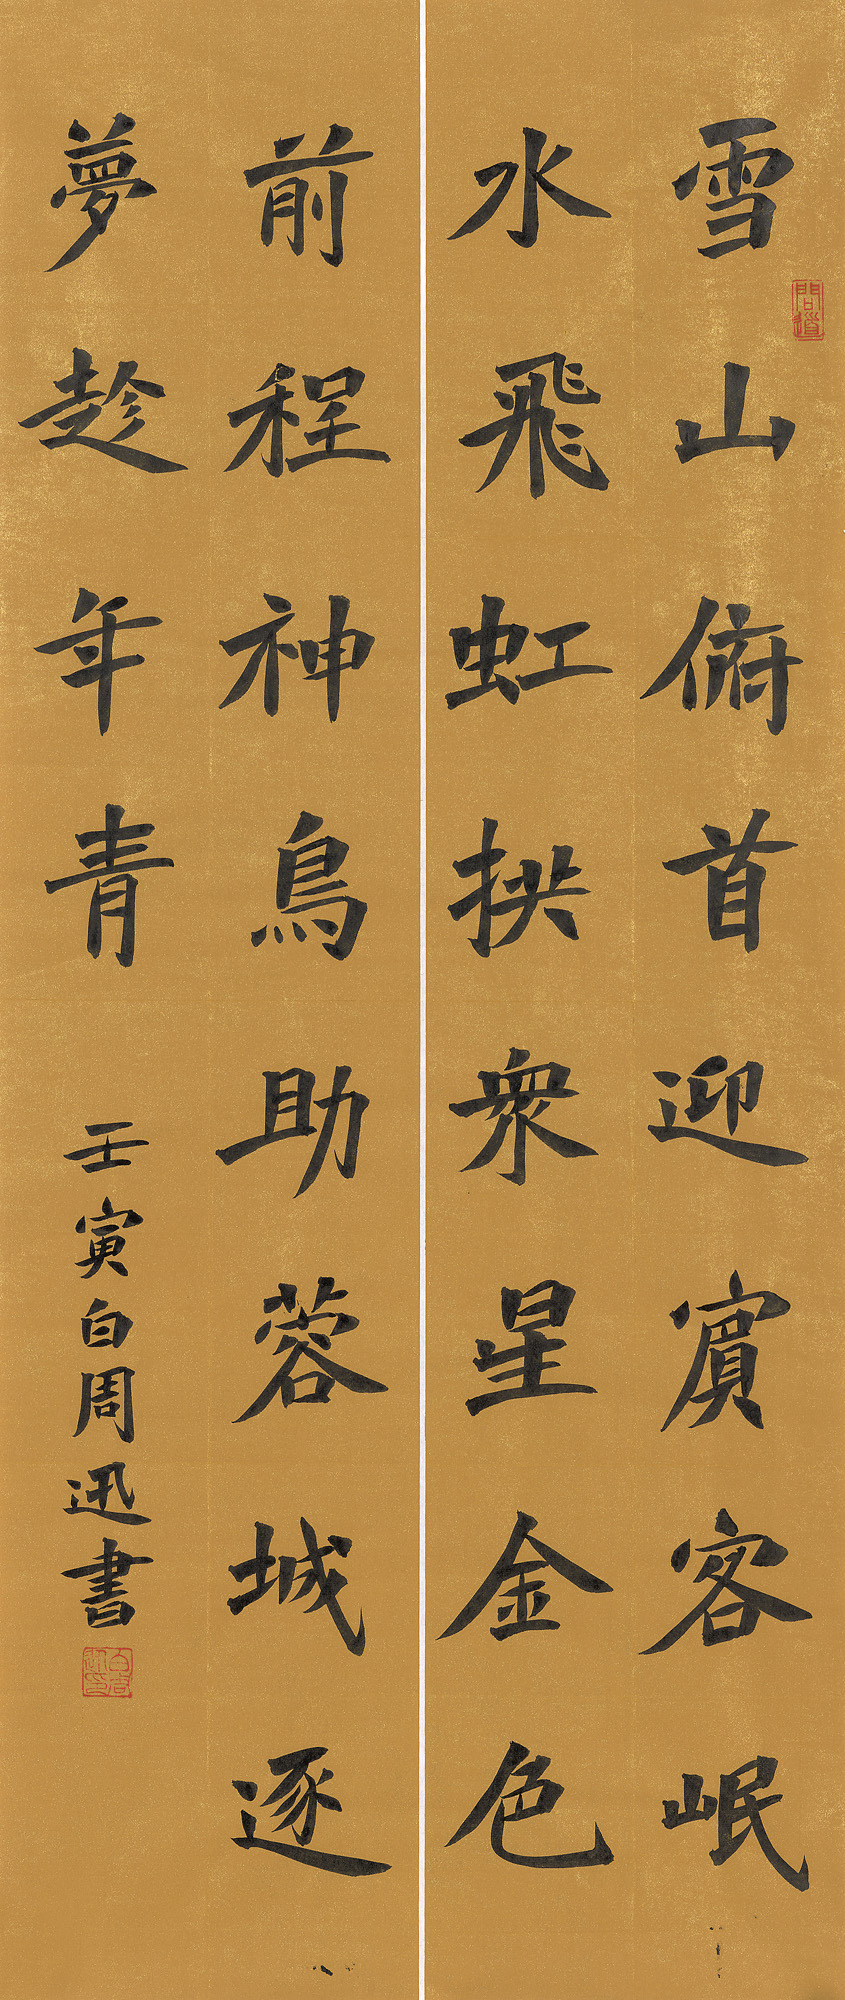 雪山俯首迎賓客岷
水飛虹拱衆星金色
前程神鳥助蓉城逐
夢趁年青
壬寅白周迅書
問道